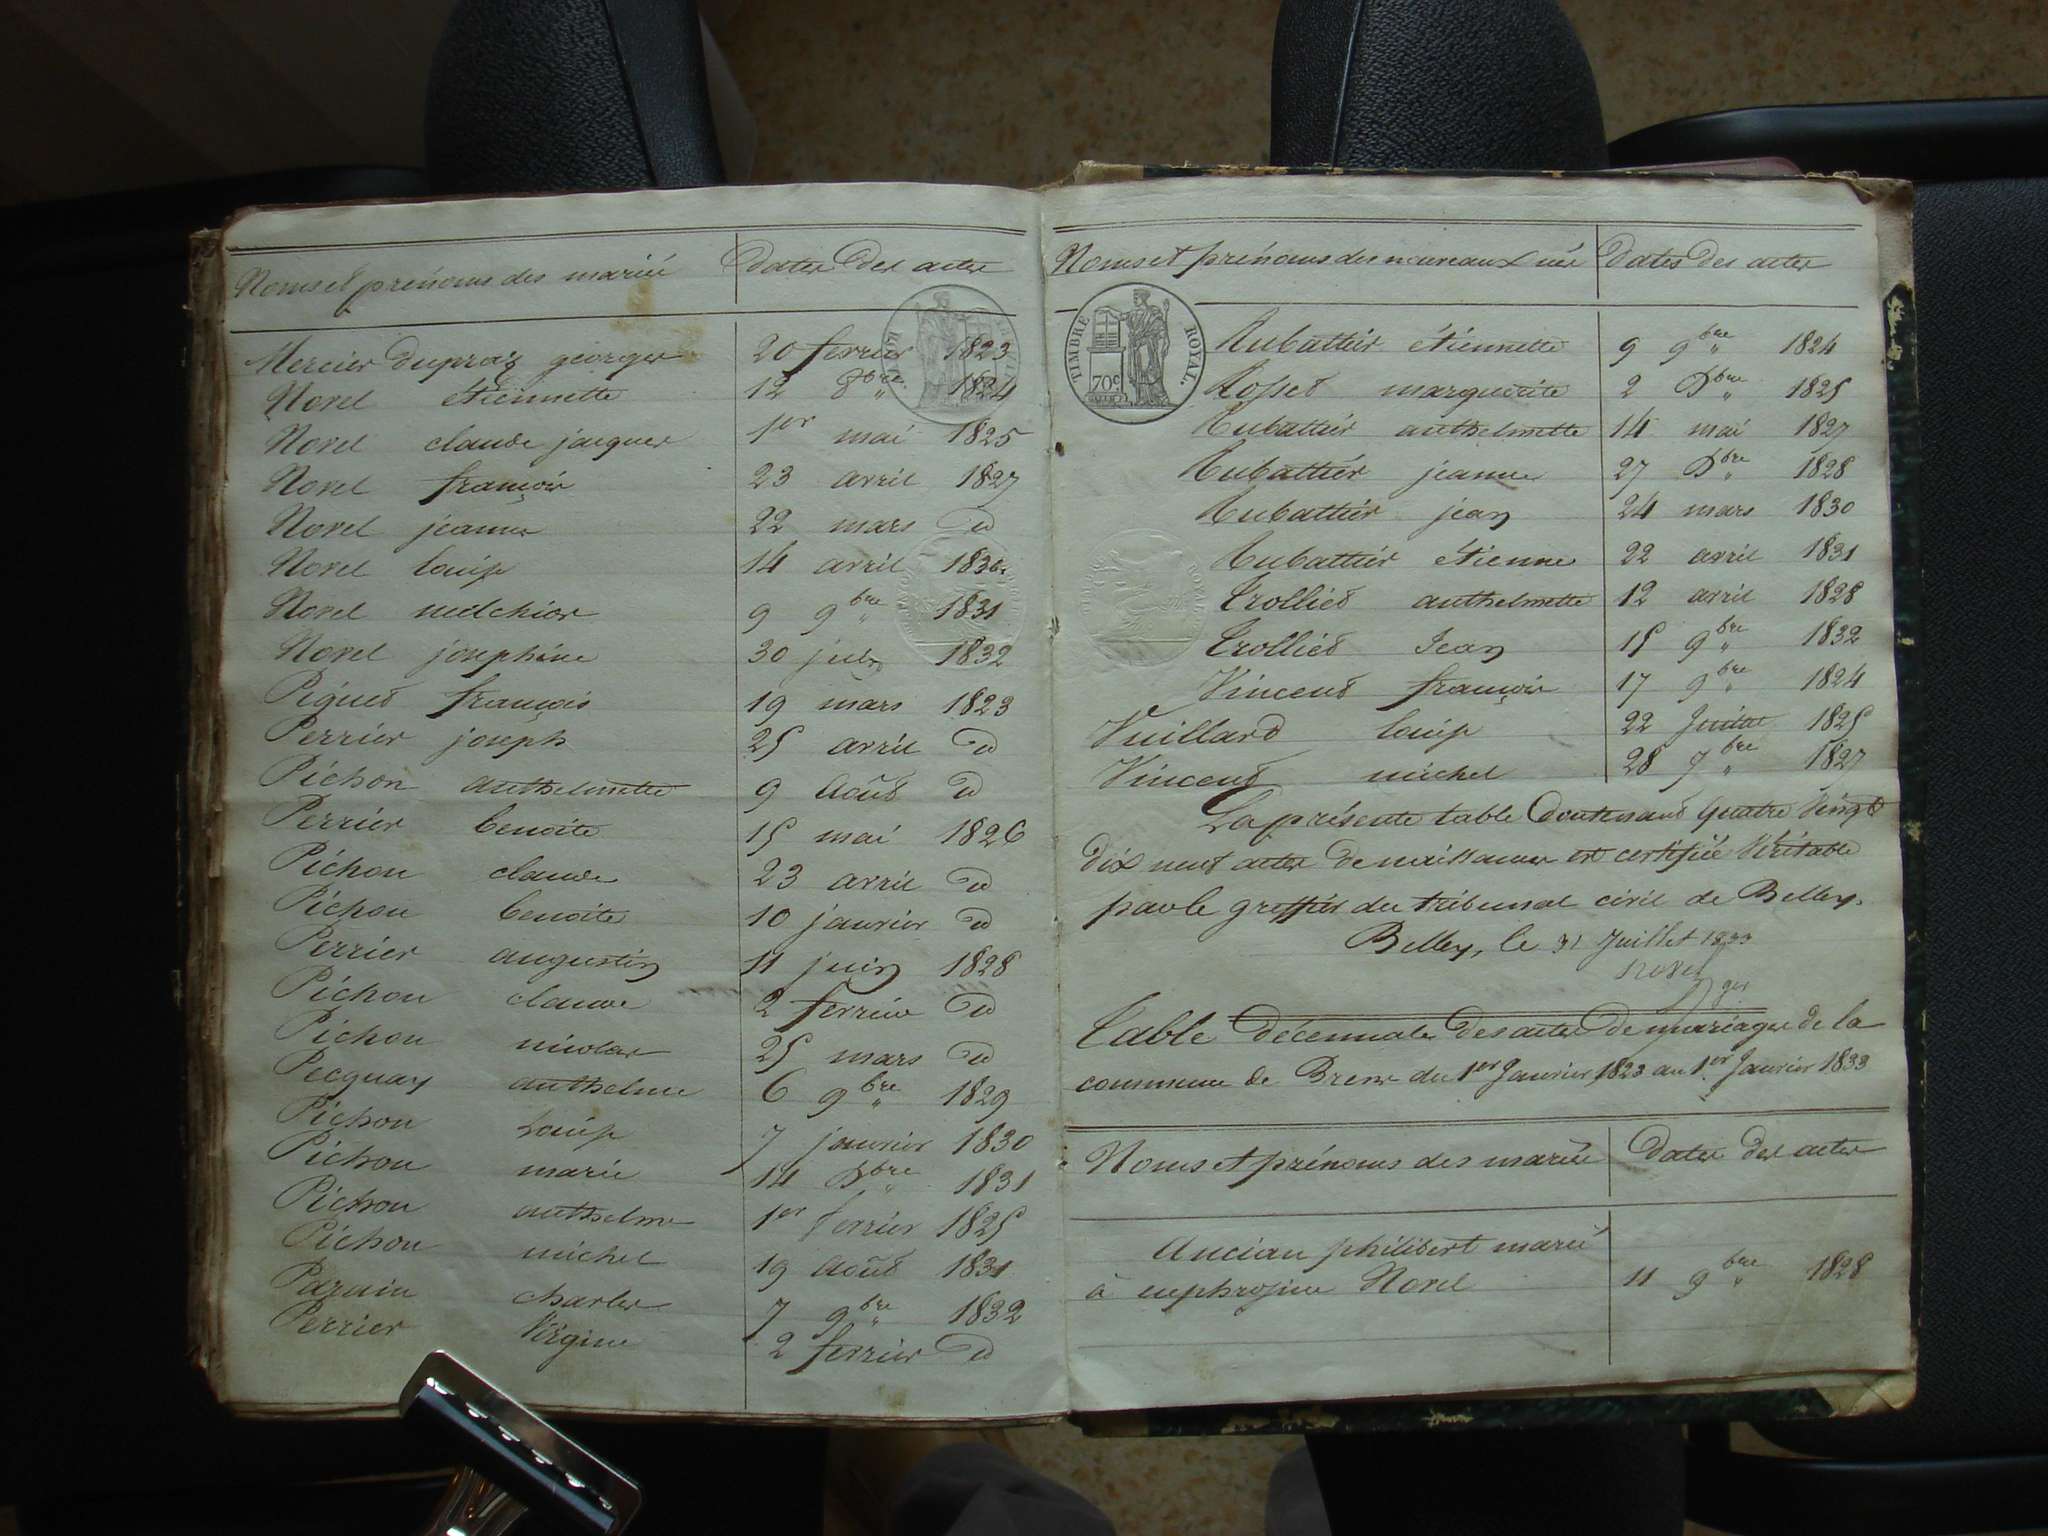 Noms et prénoms des mariés Dates des actes
Mercier dupraz georges 20 fevrier 1823
Norel étiennette 12 8bre 1824
Norel claude jacques 1er mai 1825
Norel françois 23 avril 1827
Norel jeanne 22 mars do
Norel louis 14 avril 1830
Norel melchior 9 9bre 1831
Norel joséphine 30 juin 1832
Piquet françois 19 mars 1823
Perrier joseph 25 avril do
Pichon anthelmette 9 Août do
Perrier benoite 15 mai 1826
Pichon claude 23 avril do
Pichon benoite 10 janvier do
Perrier augustin 11 juin 1828
Pichon claude 2 fevrier do
Pichon nicolas 25 mars do
Pecquay anthelme 6 9bre 1829
Pichon Louis 7 janvier 1830
Pichon marie 14 Dbre 1831
Pichon anthelme 1er fevrier 1825
Pichon michel 19 Août 1831
charles 7 9bre 1832
Perrier Virginie 2 fevrier do
Noms et prénoms des nouveaux nés Dates des actes
TIMBRE ROYAL.
70c
Rubattier étiennette 9 9bre 1824
Rosset marguerite 2 Dbre 1825
Rubattier anthelmette 14 mai 1827
Rubattier jeanne 27 Dbre 1828
Rubattier jean 24 mars 1830
Rubattier étienne 22 avril 1831
Trolliet anthelmette 12 avril 1828
Trolliet Jean 15 9bre 1832
Vincent françois 17 9bre 1824
Vuillard louis 22 Juillet 1825
Vincent michel 28 7bre 1827
La présente table Contenant Quatre Vingt
dix neuf actes de naissances est certifiée Véritable
par le greffier du tribunal civil de Belley.
Belley, le 31 Juillet 1833
Table décennale des actes de mariages de la
commune de Brens du 1er Janvier 1823 au 1er Janvier 1833
Noms et prénoms des mariés Dates des actes
Ancian philibert marié
à euphrosine Norel 11 9bre 1828